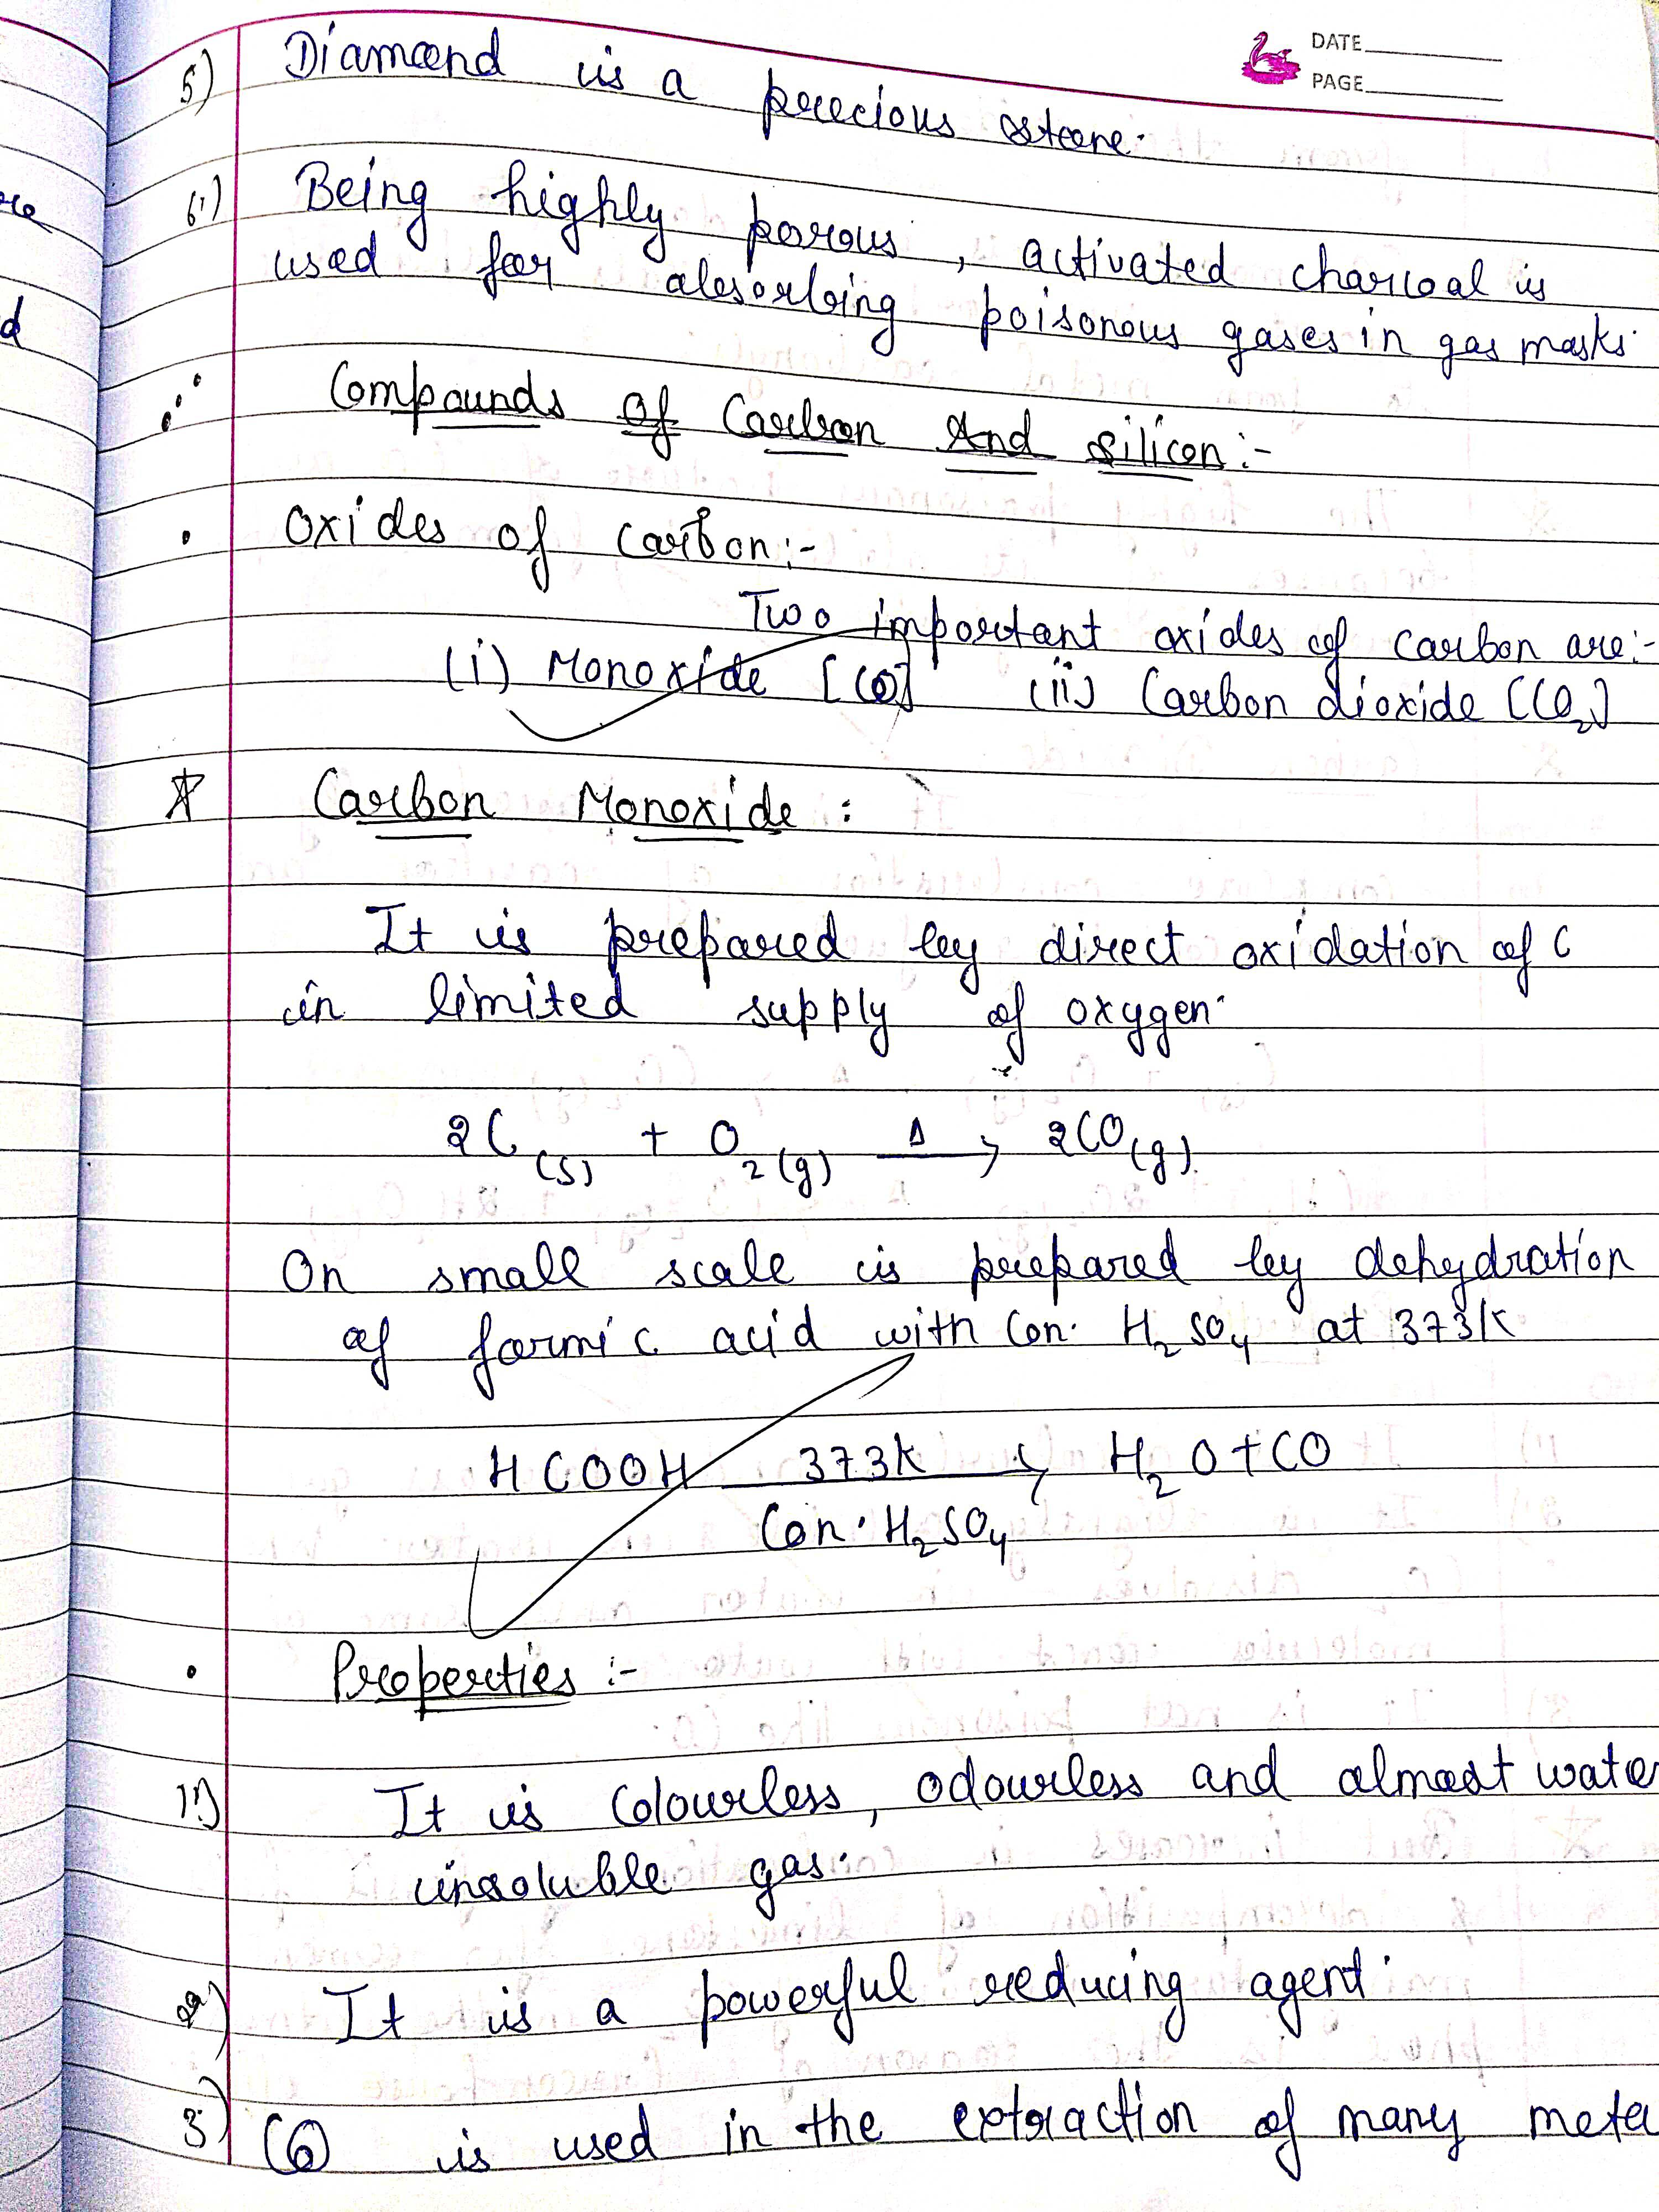 DATE
PAGE
5) Diamond is a precious stone.
6.) Being highly porous, activated charcoal is
used for absorbing poisonous gases in gas masks.
Compounds Of Carbon And silicon :-
• Oxides of Carbon :-
Two important oxides of carbon are :-
(i) Monoxide [CO] (ii) Carbon dioxide [CO₂]
☆ Carbon Monoxide :
It is prepared by direct oxidation of C
in limited supply of oxygen.
2C (s) + O₂ (g) —Δ→ 2CO (g).
On small scale is prepared by dehydration
of formic acid with Con. H₂SO₄ at 373K
HCOOH —373K→ H₂O + CO
Con. H₂SO₄
• Properties :-
1.) It is Colourless, odourless and almost wate
insoluble gas.
2.) It is a powerful reducing agent.
3.) CO is used in the extraction of many meta